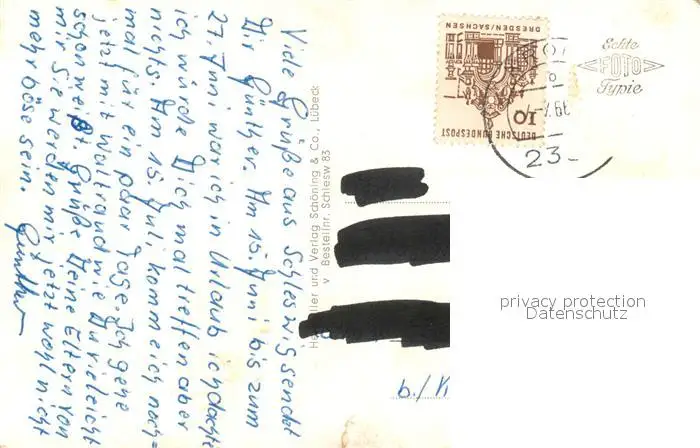 Viele Grüße aus Schleswig sendet
Dir Günther. Am 15. Juni bis zum
27. Juni war ich in Urlaub ich dachte
ich würde Dich mal treffen aber
nichts. Am 15. Juli komme ich noch=
mal für ein paar Tage. Ich gehe
jetzt mit Waltraud wie Du vieleicht
schon weißt Grüße Deine Eltern von
mir Sie werden mir jetzt wohl nicht
mehr böse sein. Günther
Hersteller und Verlag Schöning & Co., Lübeck
v Bestellnr. Schlesw 83
DRESDEN/SACHSEN
DEUTSCHE BUNDESPOST
10
23-
Echte
FOTO
Typie
b./K
privacy protection
Datenschutz